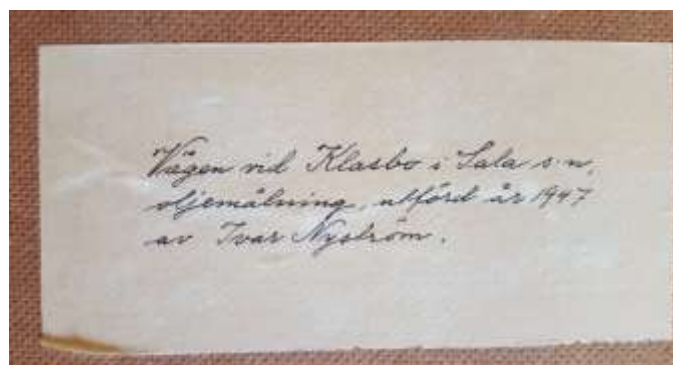 Vägen vid Klasbo i Sala s:n,
oljemålning, utförd år 1947
av Ivar Nyström.